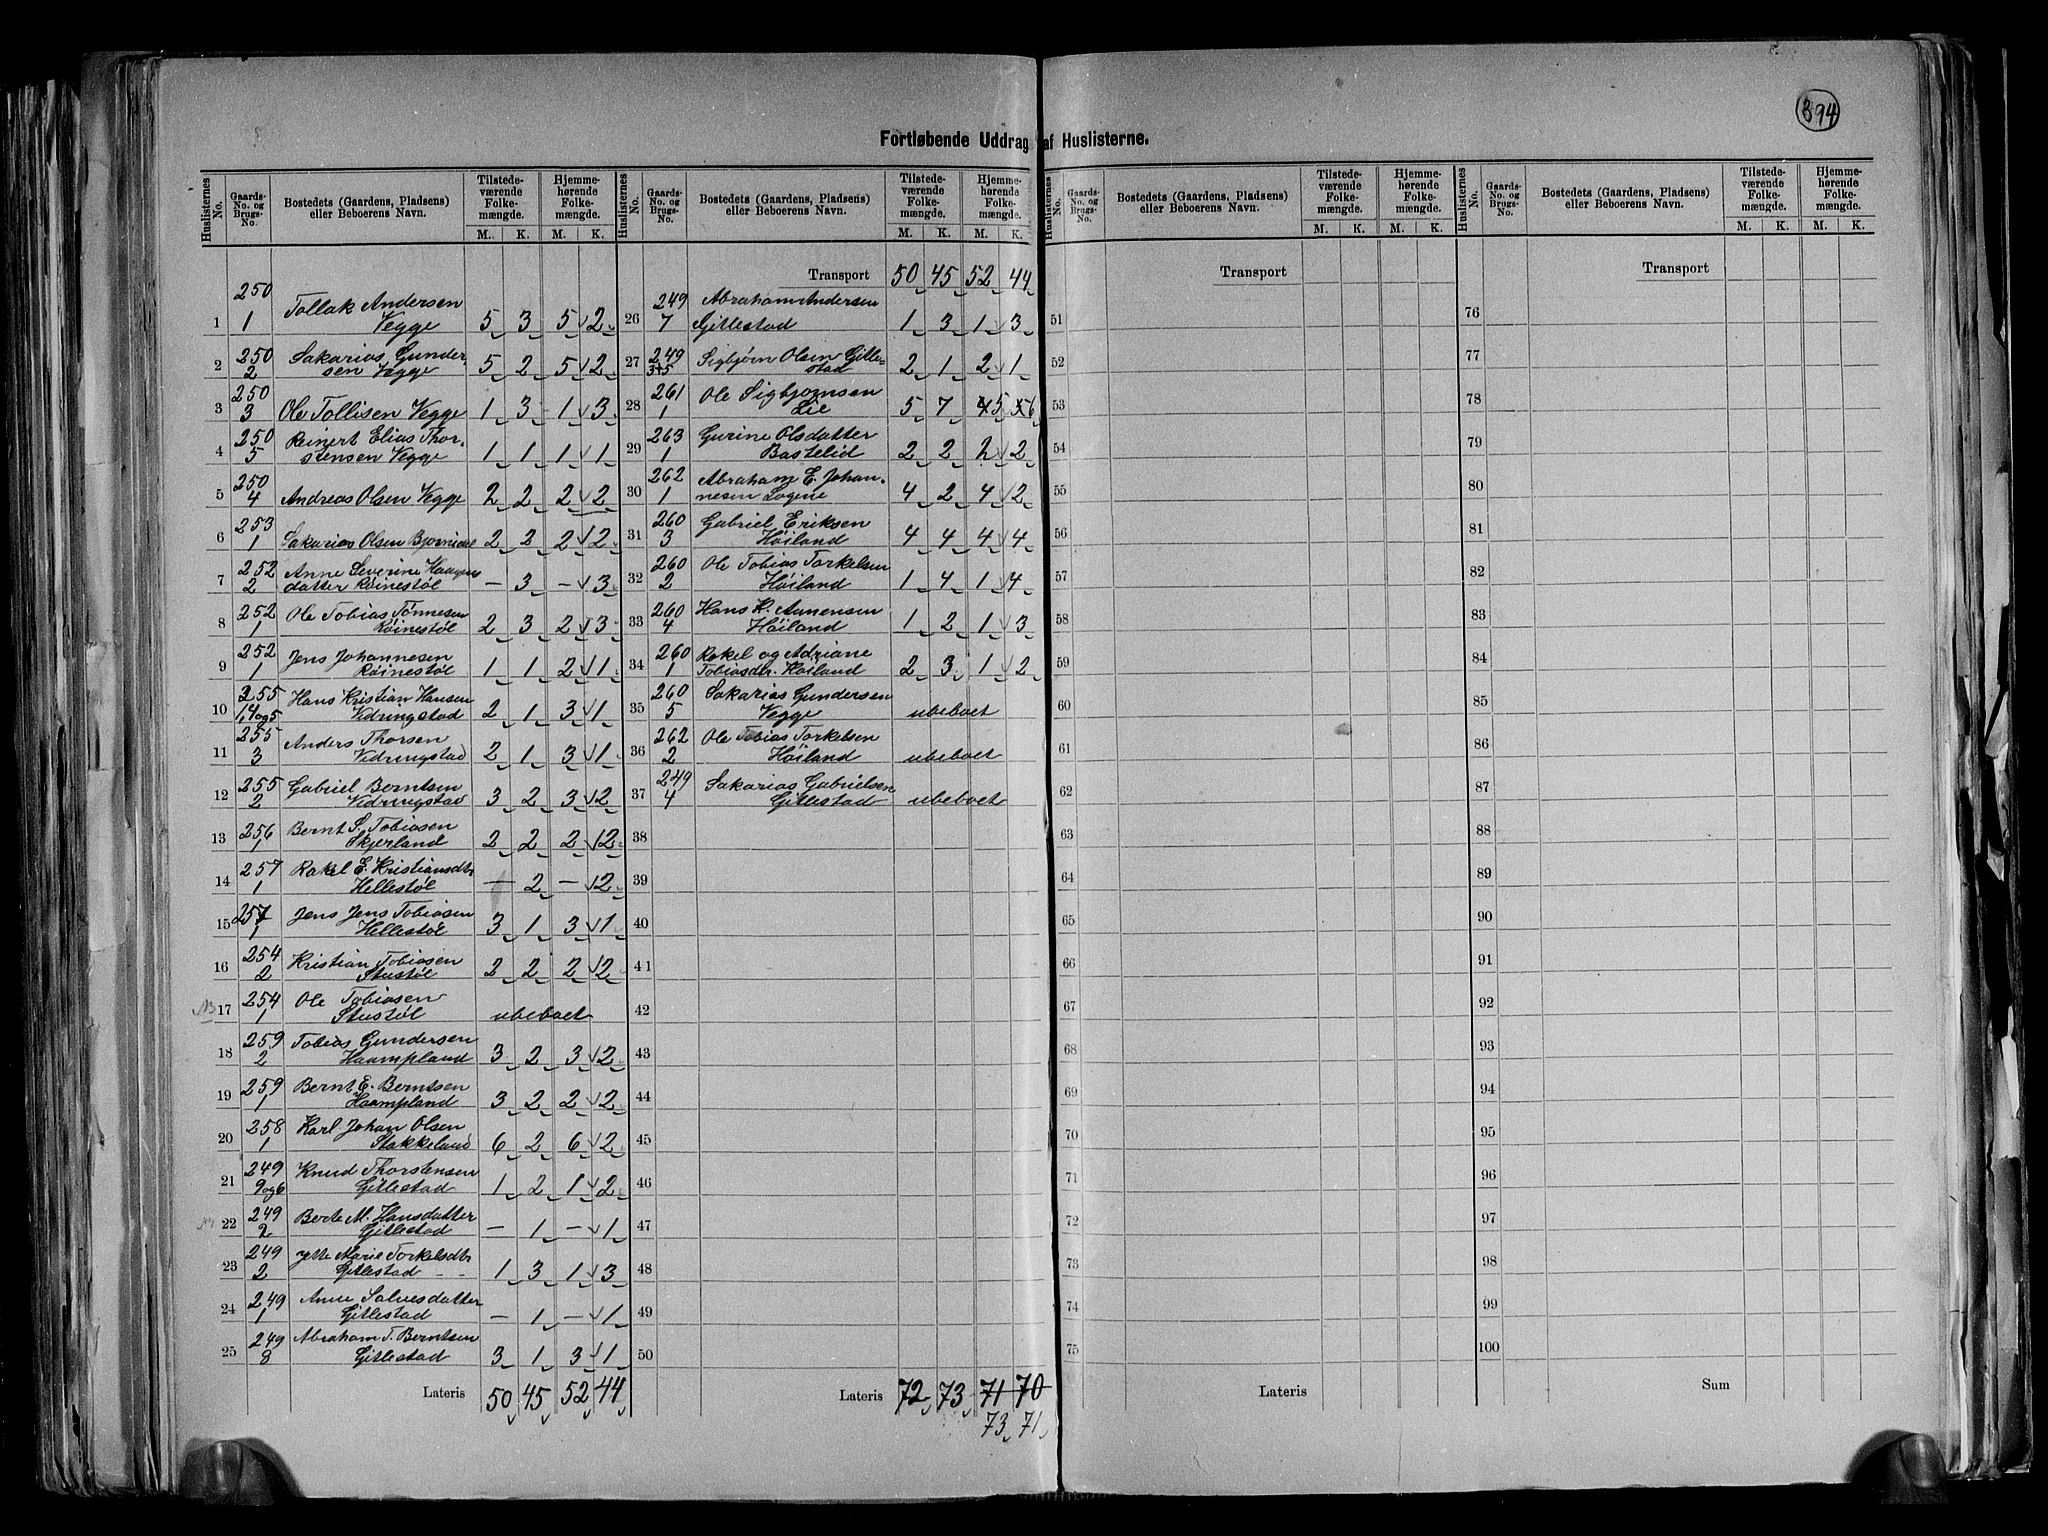 394
Fortløbende Uddrag af Huslisterne.
Huslisternes No. Gaards-No. og Brugs-No. Bostedets (Gaardens, Pladsens) eller Beboerens Navn. Tilstedeværende Folkemængde. M. K. Hjemmehørende Folkemængde. M. K.
1 250 1 Tollak Andersen Vegge 5 3 5 2
2 250 2 Sakarias Gundersen Vegge 5 2 5 2
3 250 3 Ole Tollisen Vegge 1 3 1 3
4 250 5 Reinert Elias Thorstensen Vegge 1 1 1 1
5 250 4 Andreas Olsen Vegge 2 2 2 2
6 253 1 Sakarias Olsen 2 2 2 2
7 252 2 Anne Severine datter Røinestøl – 3 – 3
8 252 1 Ole Tobias Tønnesen Røinestøl 2 3 2 3
9 252 1 Jens Johannesen Røinestøl 1 1 2 1
10 255 1,4og5 Hans Kristian Hansen Vidringstad 2 1 3 1
11 255 3 Anders Thorsen Vidringstad 2 1 3 1
12 255 2 Gabriel Berntsen Vidringstad 3 2 3 2
13 256 1 Bernt S. Tobiasen Skjerland 2 2 2 2
14 257 1 Rakel E. Kristiansdtr Hellestøl – 2 – 2
15 257 1 Jens Jens Tobiasen Hellestøl 3 1 3 1
16 254 2 Kristian Tobiasen Stustøl 2 2 2 2
17 254 1 Ole Tobiasen Stustøl ubeboet
18 259 2 Tobias Gundersen Haampland 3 2 3 2
19 259 1 Bernt E. Berntsen Haampland 3 2 2 2
20 258 1 Karl Johan Olsen Stakkeland 6 2 6 2
21 249 9og6 Knud Thorstensen Gitlestad 1 2 1 2
22 249 2 Berte M. Hansdatter Gitlestad – 1 – 1
23 249 2 Marie Torkelsdtr Gitlestad 1 3 1 3
24 249 1 Anne Salvesdatter Gitlestad – 1 – 1
25 249 8 Abraham T. Berntsen Gitlestad 3 1 3 1
Lateris 50 45 52 44
Huslisternes No. Gaards-No. og Brugs-No. Bostedets (Gaardens, Pladsens) eller Beboerens Navn. Tilstedeværende Folkemængde. M. K. Hjemmehørende Folkemængde. M. K.
Transport 50 45 52 44
26 249 7 Abraham Andersen Gitlestad 1 3 1 3
27 249 3+5 Sigbjørn Olsen Gitlestad 2 1 2 1
28 261 1 Ole Sigbjørnsen Lie 5 7 4 5 5 6
29 263 1 Gurine Olsdatter Bastelid 2 2 2 2
30 262 1 Abraham E. Johannesen Logene 4 2 4 2
31 260 3 Gabriel Eriksen Høiland 4 4 4 4
32 260 2 Ole Tobias Torkelsen Høiland 1 4 1 4
33 260 4 Hans K. Aanensen Høiland 1 2 1 3
34 260 1 Rakel og Adriane Tobiasdtr. Høiland 2 3 1 2
35 260 5 Sakarias Gundersen Vegge ubeboet
36 262 2 Ole Tobias Torkelsen Høiland ubeboet
37 249 4 Sakarias Gabrielsen Gitlestad ubeboet
38
39
40
41
42
43
44
45
46
47
48
49
50
Lateris 72 73 71 70
73 71
Huslisternes No. Gaards-No. og Brugs-No. Bostedets (Gaardens, Pladsens) eller Beboerens Navn. Tilstedeværende Folkemængde. M. K. Hjemmehørende Folkemængde. M. K.
Transport
51
52
53
54
55
56
57
58
59
60
61
62
63
64
65
66
67
68
69
70
71
72
73
74
75
Lateris
Huslisternes No. Gaards-No. og Brugs-No. Bostedets (Gaardens, Pladsens) eller Beboerens Navn. Tilstedeværende Folkemængde. M. K. Hjemmehørende Folkemængde. M. K.
Transport
76
77
78
79
80
81
82
83
84
85
86
87
88
89
90
91
92
93
94
95
96
97
98
99
100
Sum